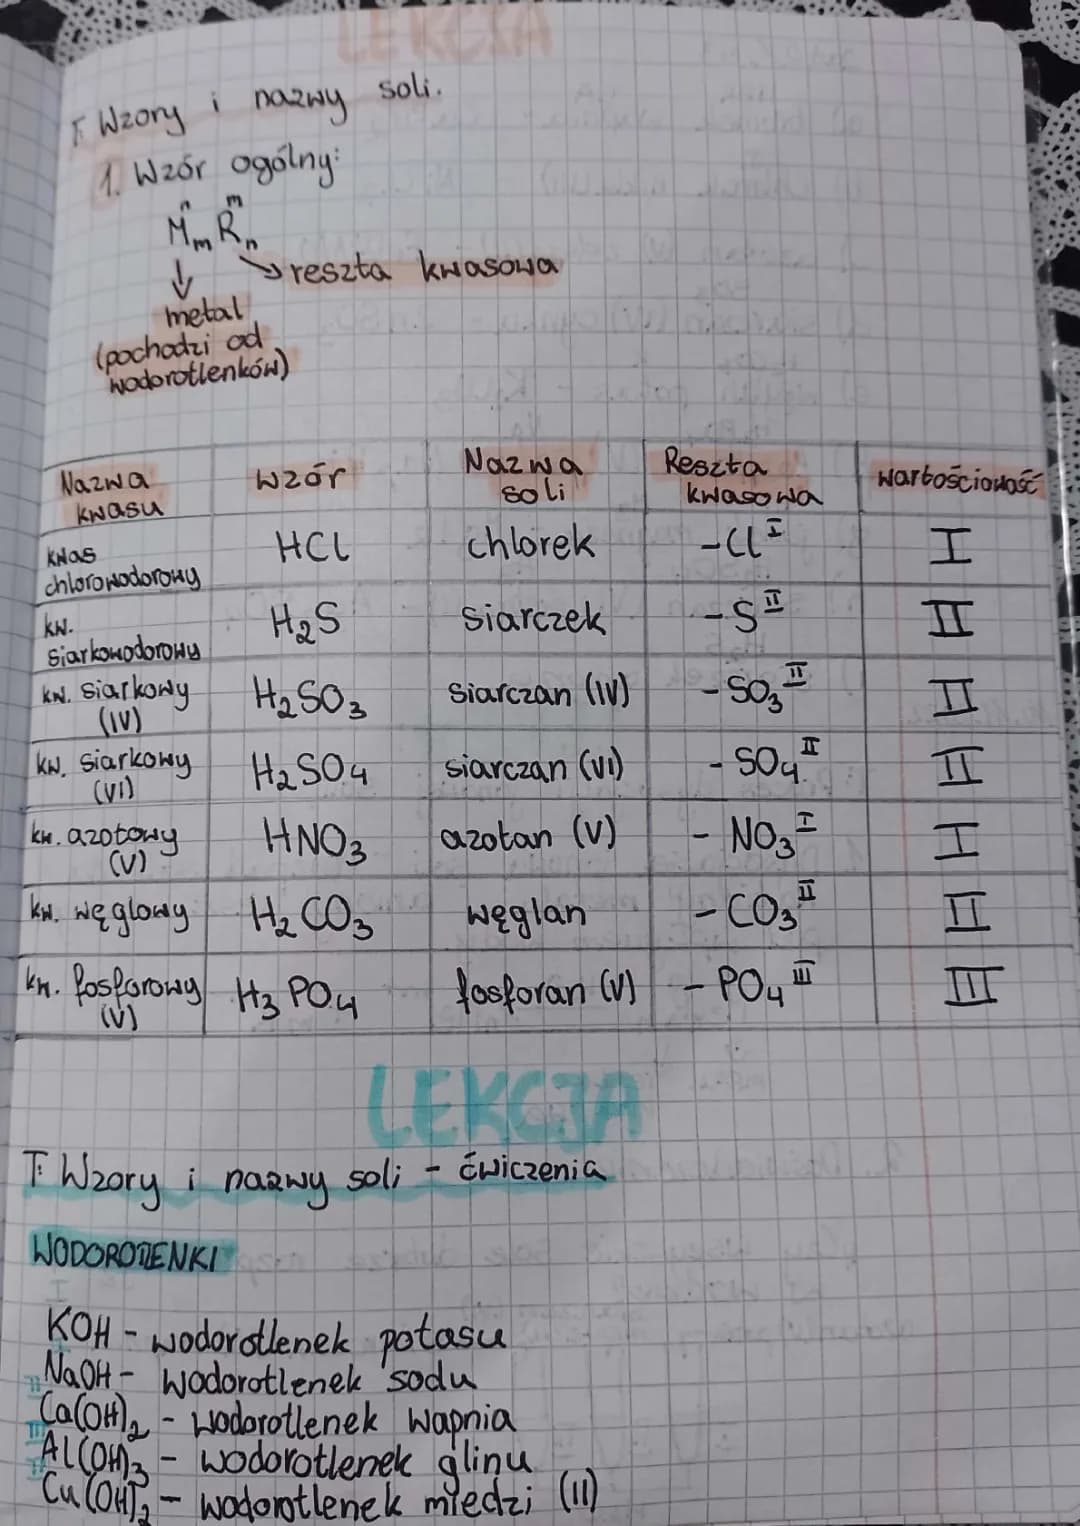 LEKCJA
T: Wzory i nazwy soli.
1. Wzór ogólny:
n m
MmRn
reszta kwasowa
metal
(pochodzi od
wodorotlenków)
Nazwa kwasu | wzór | Nazwa soli | Reszta kwasowa | wartościowość
kwas chlorowodorowy | HCl | chlorek | -Cl^I | I
kw. siarkowodorowy | H₂S | siarczek | -S^II | II
kw. siarkowy (IV) | H₂SO₃ | siarczan (IV) | -SO₃^II | II
kw. siarkowy (VI) | H₂SO₄ | siarczan (VI) | -SO₄^II | II
kw. azotowy (V) | HNO₃ | azotan (V) | -NO₃^I | I
kw. węglowy | H₂CO₃ | węglan | -CO₃^II | II
kw. fosforowy (V) | H₃PO₄ | fosforan (V) | -PO₄^III | III
LEKCJA
T: Wzory i nazwy soli - ćwiczenia
WODOROTLENKI
KOH - wodorotlenek potasu
NaOH - wodorotlenek sodu
II Ca(OH)₂ - wodorotlenek wapnia
III Al(OH)₃ - wodorotlenek glinu
II Cu(OH)₂ - wodorotlenek miedzi (II)